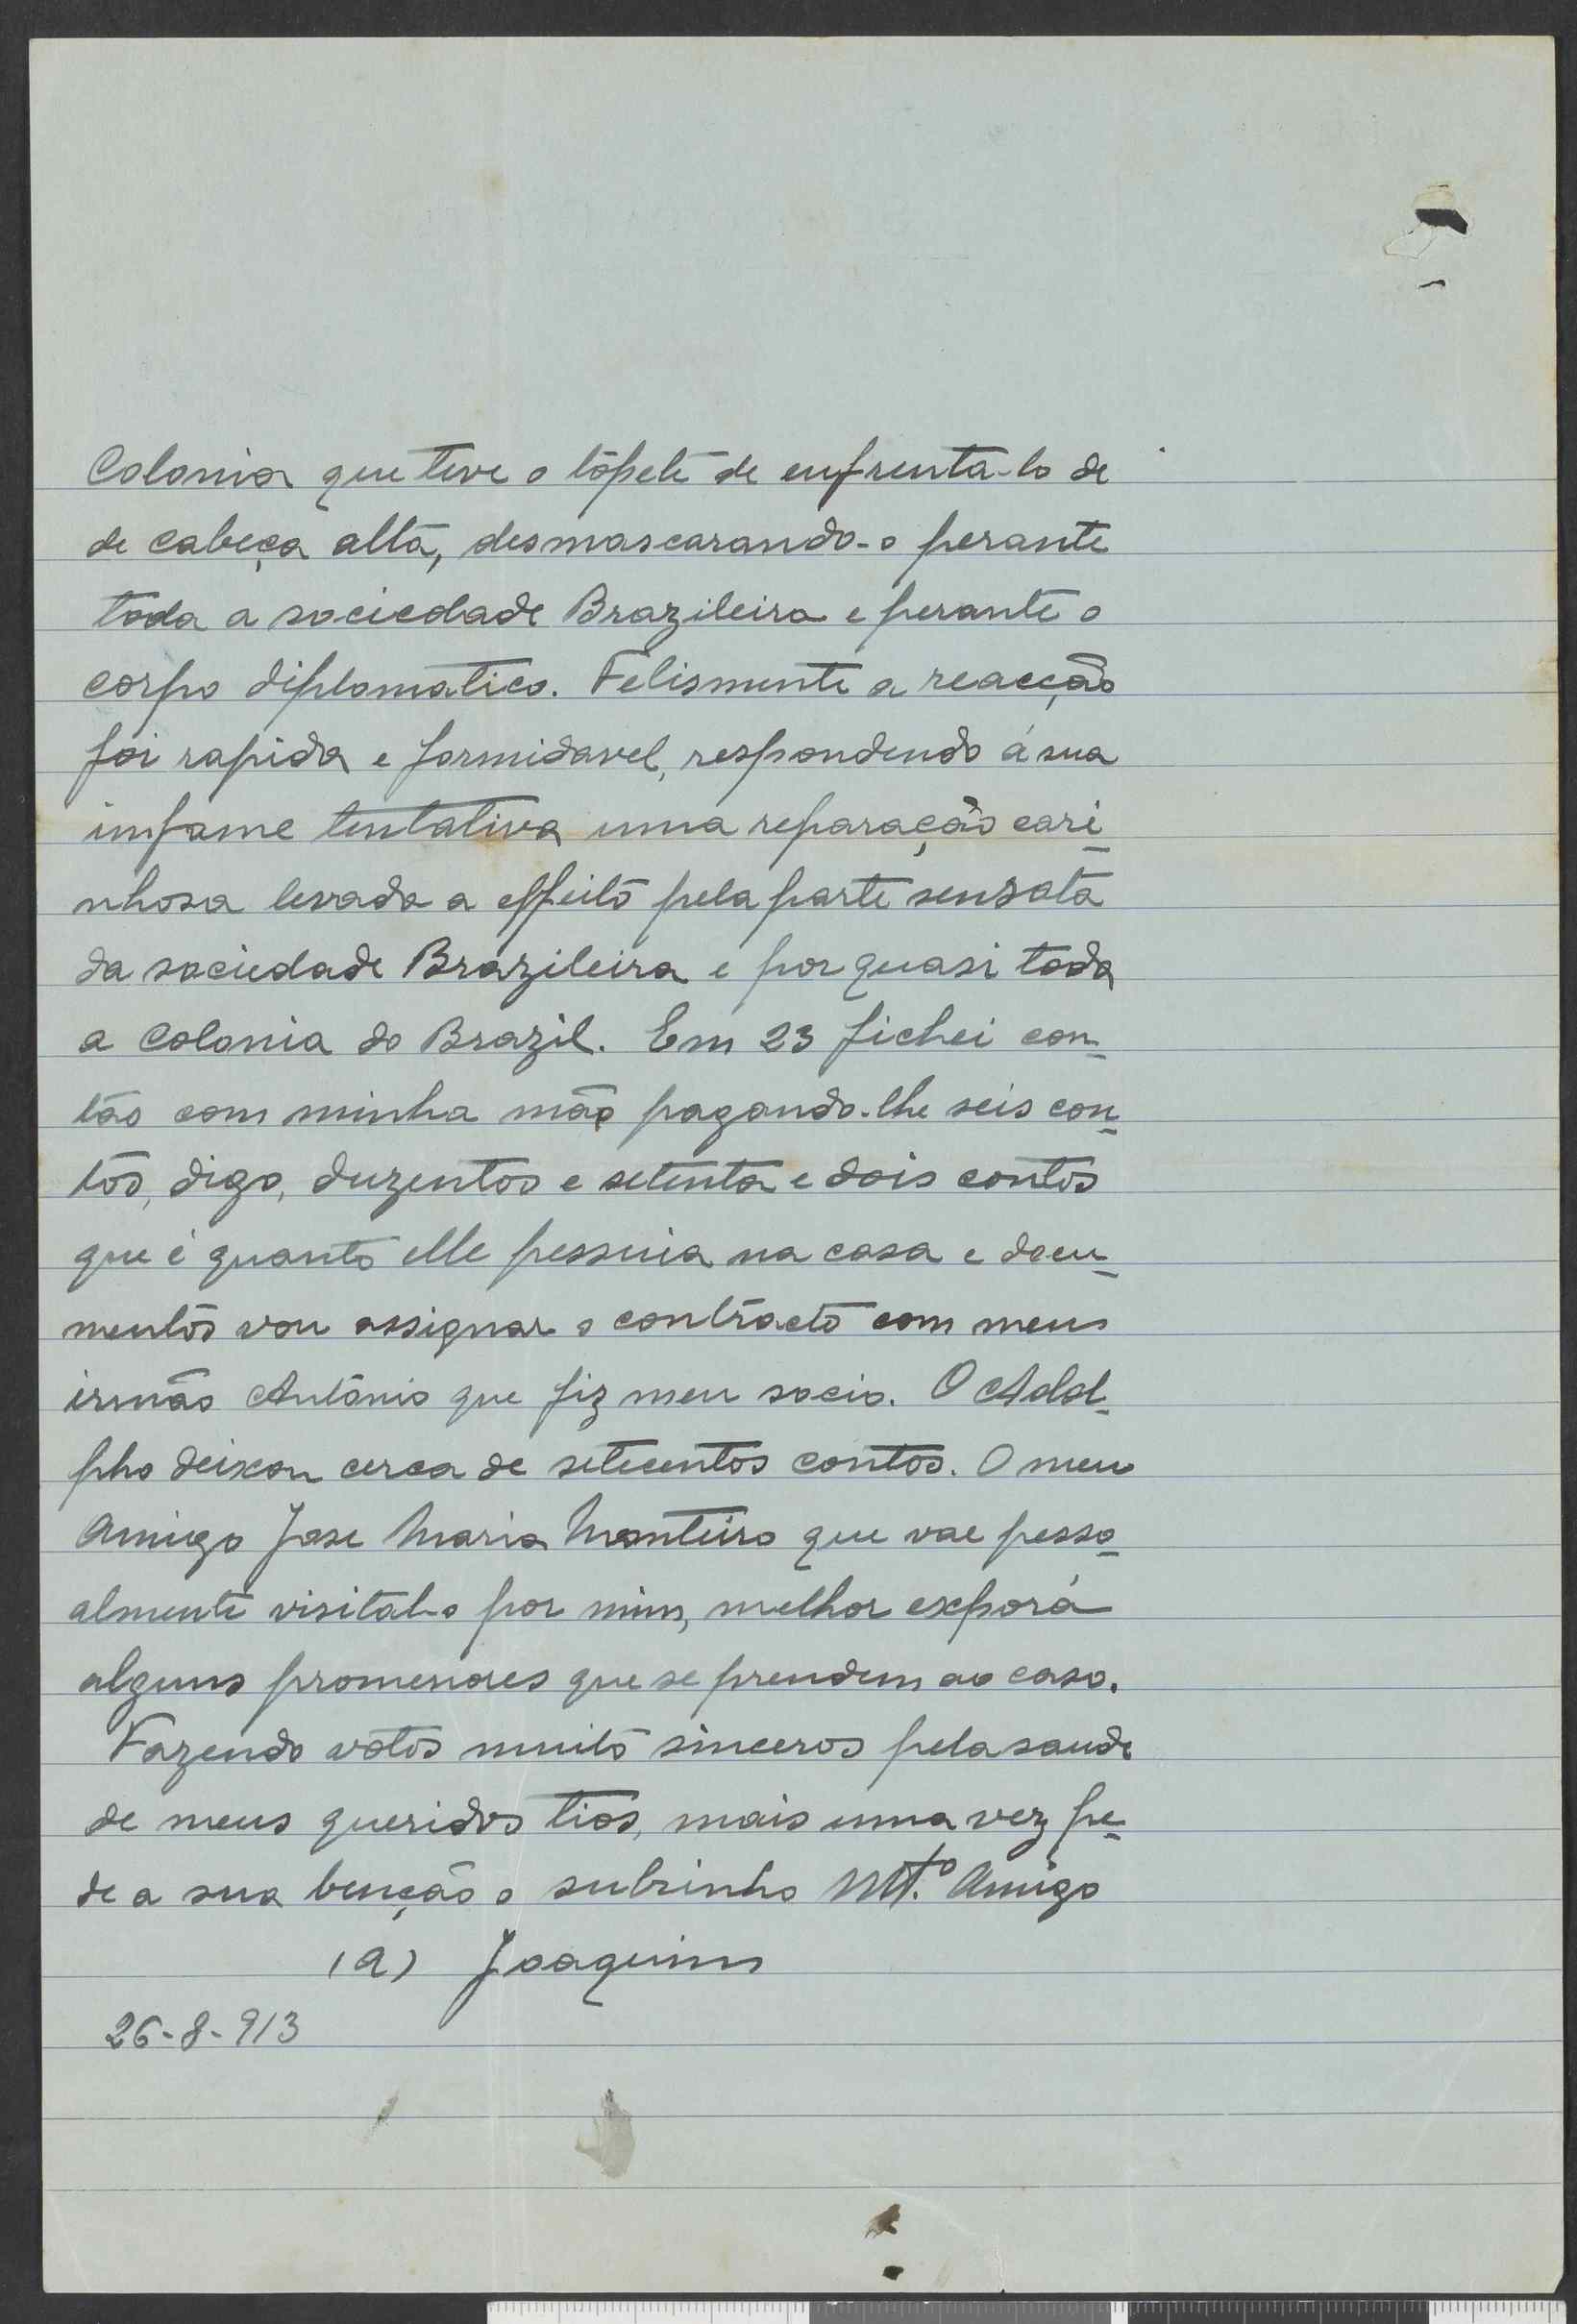 Colonia que teve o tópete de enfrenta-lo de
de cabeça alta, desmascarando-o perante
toda a sociedade Brazileira e perante o
corpo diplomatico. Felismente a reacção
foi rapida e formidavel, respondendo á sua
imfame tentativa uma reparação cari-
nhosa levada a effeito pela parte sensata
da sociedade Brazileira e por quasi toda
a Colonia do Brazil. Em 23 fichei con-
tão com minha mão pagando-lhe seis con-
tos, digo, duzentos e setenta e dois contos
que é quanto elle pessuia na casa e docu-
mentos vou assignar o contracto com meus
irmão António que fiz meu socio. O Adol-
pho deixou cerca de setecentos contos. O meu
Amigo Jose Maria Monteiro que vae pesso-
almente visital-o por mim, melhor exporá
alguns promenores que se prendem ao caso.
Fazendo votos muito sinceros pela saude
de meus queridos tios, mais uma vez pe-
de a sua benção o subrinho Mt.º Amigo
(a) Joaquim
26-8-913